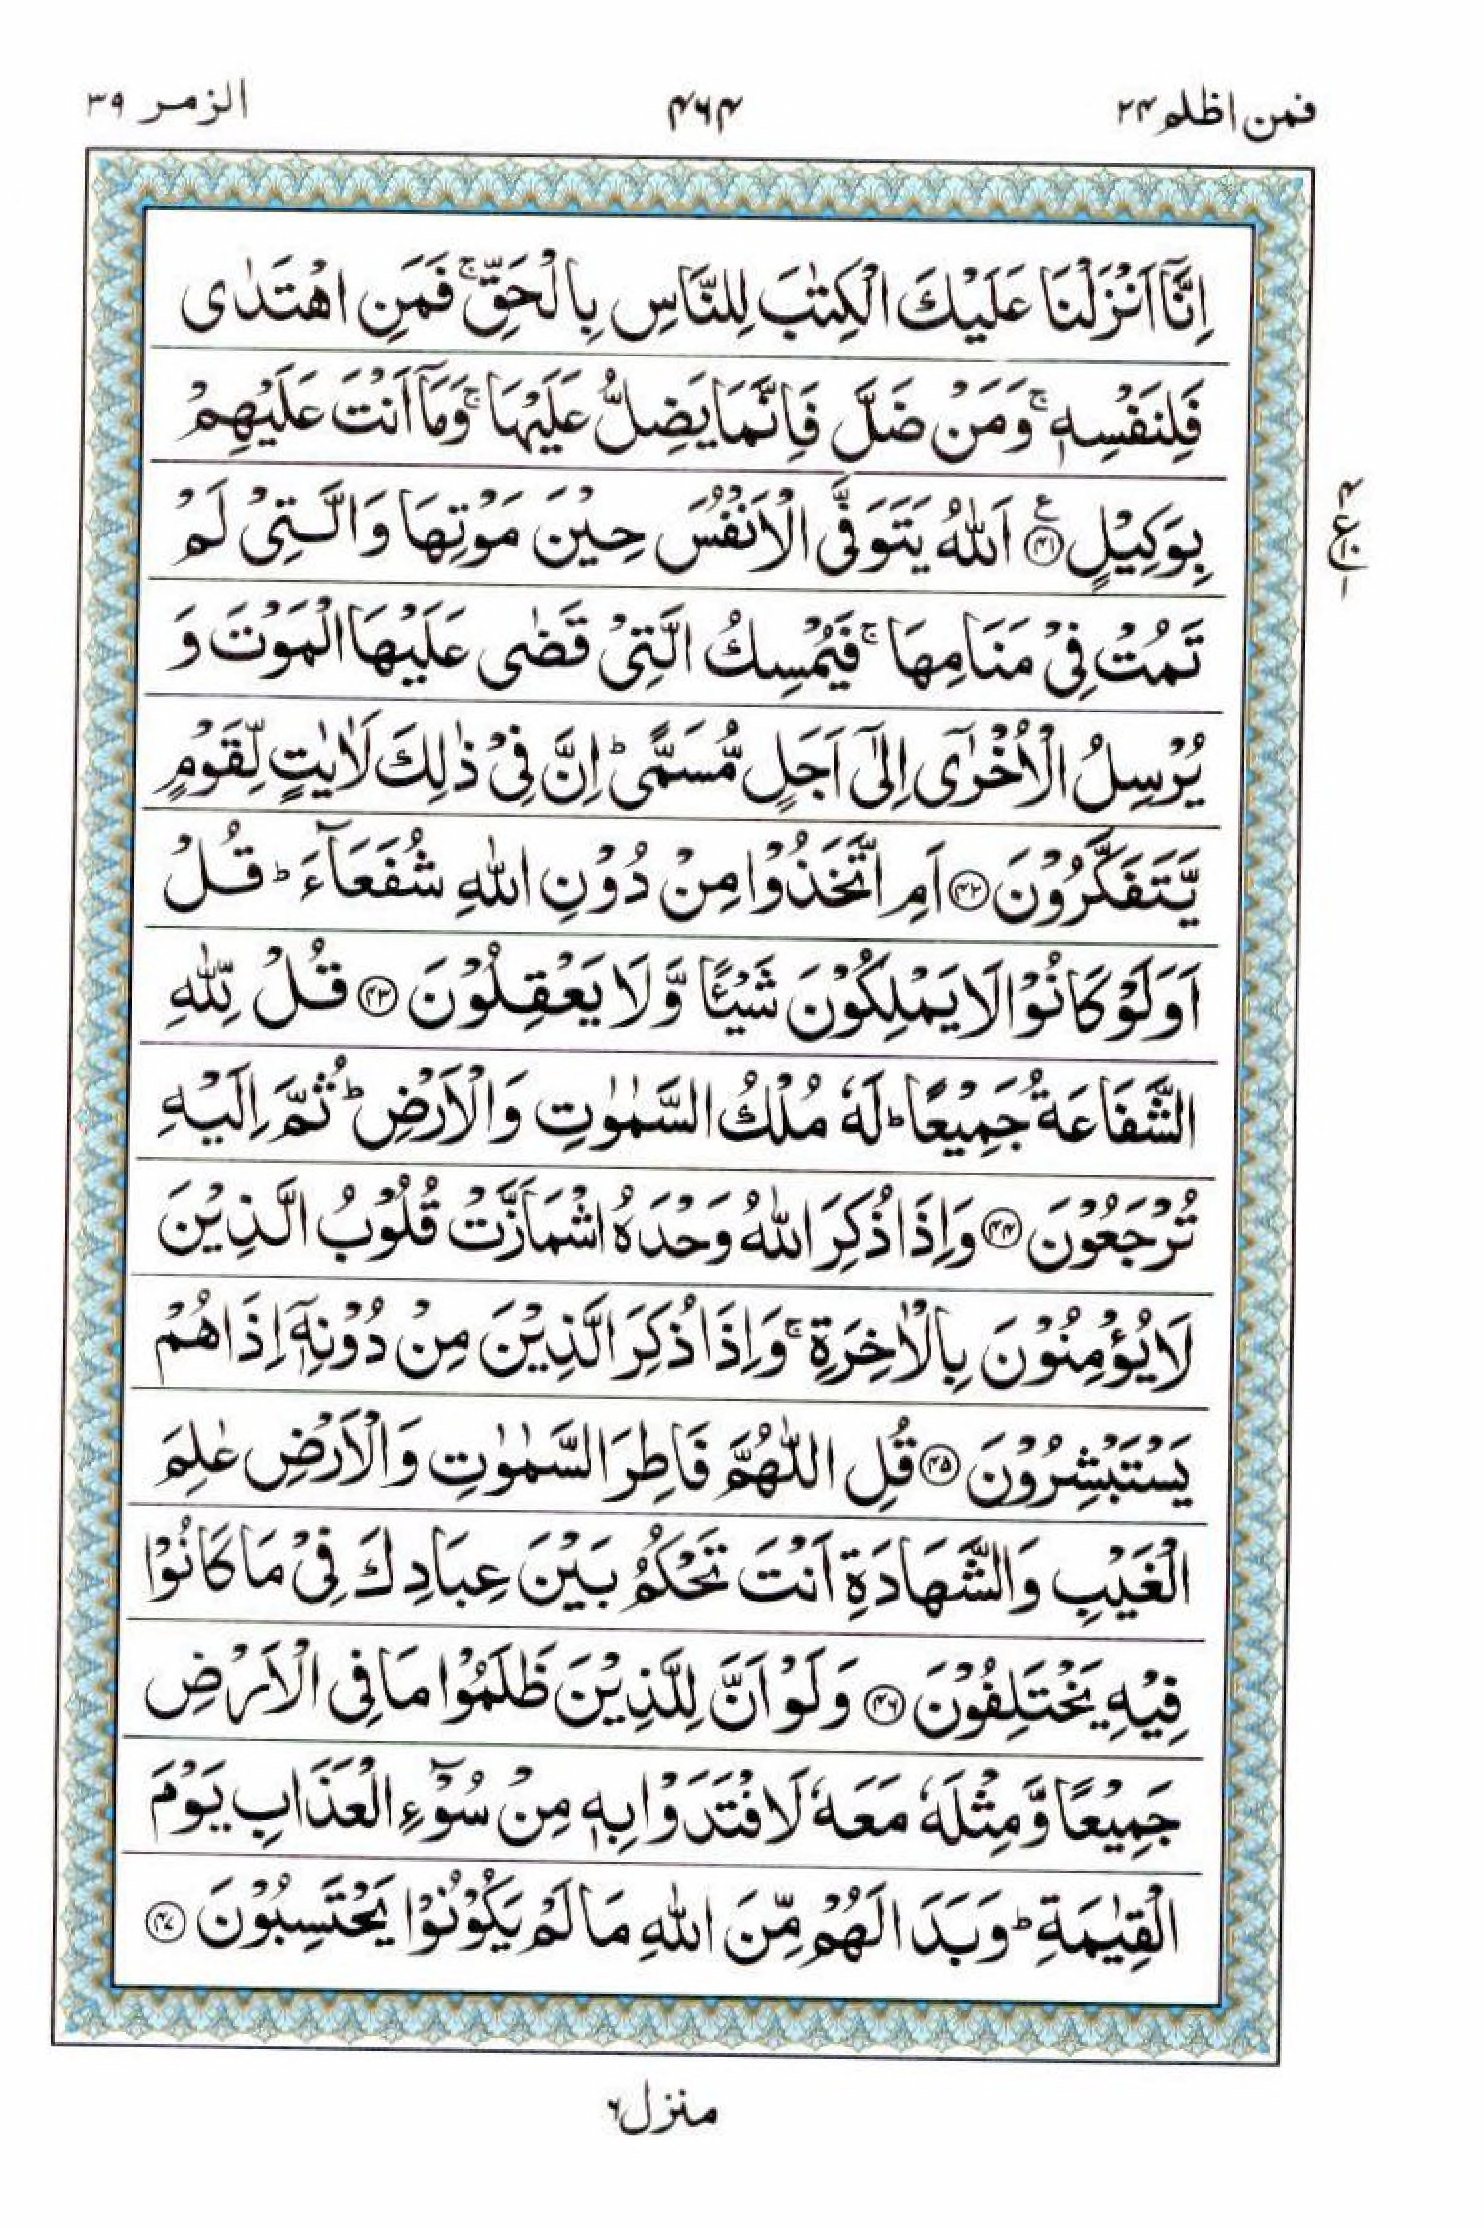 فمن اظلم ۲۴
۴۶۴
الزمر ۳۹
اِنَّاۤ اَنْزَلْنَا عَلَیْكَ الْكِتٰبَ لِلنَّاسِ بِالْحَقِّ ۚ فَمَنِ اهْتَدٰى
فَلِنَفْسِهٖ ۚ وَمَنْ ضَلَّ فَاِنَّمَا یَضِلُّ عَلَیْهَا ۚ وَمَاۤ اَنْتَ عَلَیْهِمْ
بِوَكِیْلٍ ﴿۴۱﴾ ع اَللّٰهُ یَتَوَفَّى الْاَنْفُسَ حِیْنَ مَوْتِهَا وَالَّتِیْ لَمْ
تَمُتْ فِیْ مَنَامِهَا ۚ فَیُمْسِكُ الَّتِیْ قَضٰى عَلَیْهَا الْمَوْتَ وَ
یُرْسِلُ الْاُخْرٰۤى اِلٰۤى اَجَلٍ مُّسَمًّى ؕ اِنَّ فِیْ ذٰلِكَ لَاٰیٰتٍ لِّقَوْمٍ
یَّتَفَكَّرُوْنَ ﴿۴۲﴾ اَمِ اتَّخَذُوْا مِنْ دُوْنِ اللّٰهِ شُفَعَآءَ ؕ قُلْ
اَوَلَوْ كَانُوْا لَا یَمْلِكُوْنَ شَیْـًٔا وَّلَا یَعْقِلُوْنَ ﴿۴۳﴾ قُلْ لِّلّٰهِ
الشَّفَاعَةُ جَمِیْعًا ؕ لَهٗ مُلْكُ السَّمٰوٰتِ وَالْاَرْضِ ؕ ثُمَّ اِلَیْهِ
تُرْجَعُوْنَ ﴿۴۴﴾ وَاِذَا ذُكِرَ اللّٰهُ وَحْدَهُ اشْمَاَزَّتْ قُلُوْبُ الَّذِیْنَ
لَا یُؤْمِنُوْنَ بِالْاٰخِرَةِ ۚ وَاِذَا ذُكِرَ الَّذِیْنَ مِنْ دُوْنِهٖۤ اِذَا هُمْ
یَسْتَبْشِرُوْنَ ﴿۴۵﴾ قُلِ اللّٰهُمَّ فَاطِرَ السَّمٰوٰتِ وَالْاَرْضِ عٰلِمَ
الْغَیْبِ وَالشَّهَادَةِ اَنْتَ تَحْكُمُ بَیْنَ عِبَادِكَ فِیْ مَا كَانُوْا
فِیْهِ یَخْتَلِفُوْنَ ﴿۴۶﴾ وَلَوْ اَنَّ لِلَّذِیْنَ ظَلَمُوْا مَا فِی الْاَرْضِ
جَمِیْعًا وَّمِثْلَهٗ مَعَهٗ لَافْتَدَوْا بِهٖ مِنْ سُوْٓءِ الْعَذَابِ یَوْمَ
الْقِیٰمَةِ ؕ وَبَدَا لَهُمْ مِّنَ اللّٰهِ مَا لَمْ یَكُوْنُوْا یَحْتَسِبُوْنَ ﴿۴۷﴾
۴
ع ۱۰
۱
منزل ۶